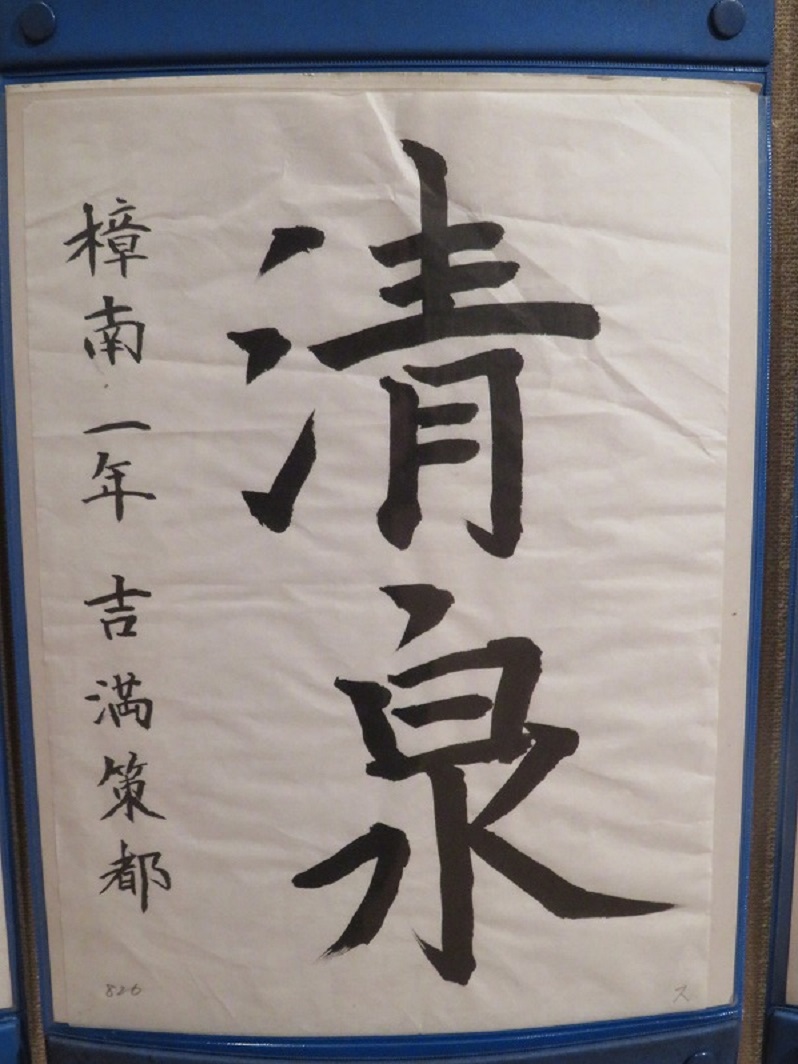 清泉
樟南一年 吉満策都
826
ス